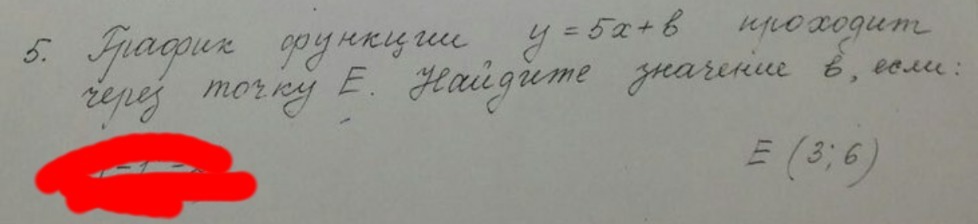 5. График функции y = 5x + в проходит
через точку E. Найдите значение в, если:
E (3; 6)